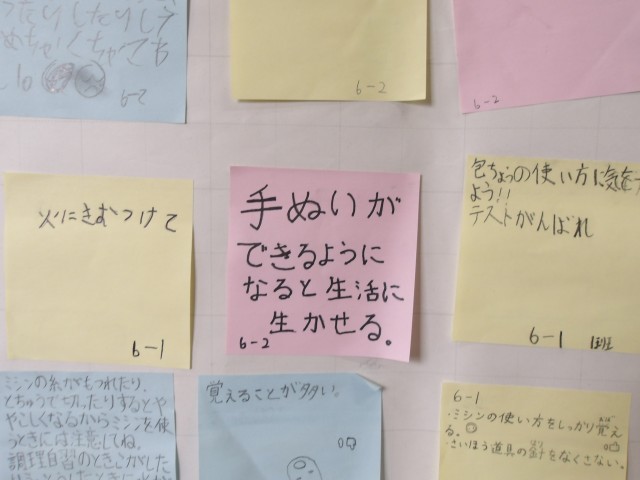 めちゃくちゃでも
6-2
6-2
6-2
火にきおつけて
6-1
手ぬいが
できるように
なると生活に
生かせる。
6-2
包ちょうの使い方に気をつ
よう!!
テストがんばれ
6-1 1班
ミシンの糸がもつれたり、
とちゅうで切ったりするとや
やこしくなるからミシンを使
うときには注意してね。
調理自習のときこがした
覚えることが多い。
6-1
・ミシンの使い方をしっかり覚え
る。
・さいほう道具の針をなくさない。